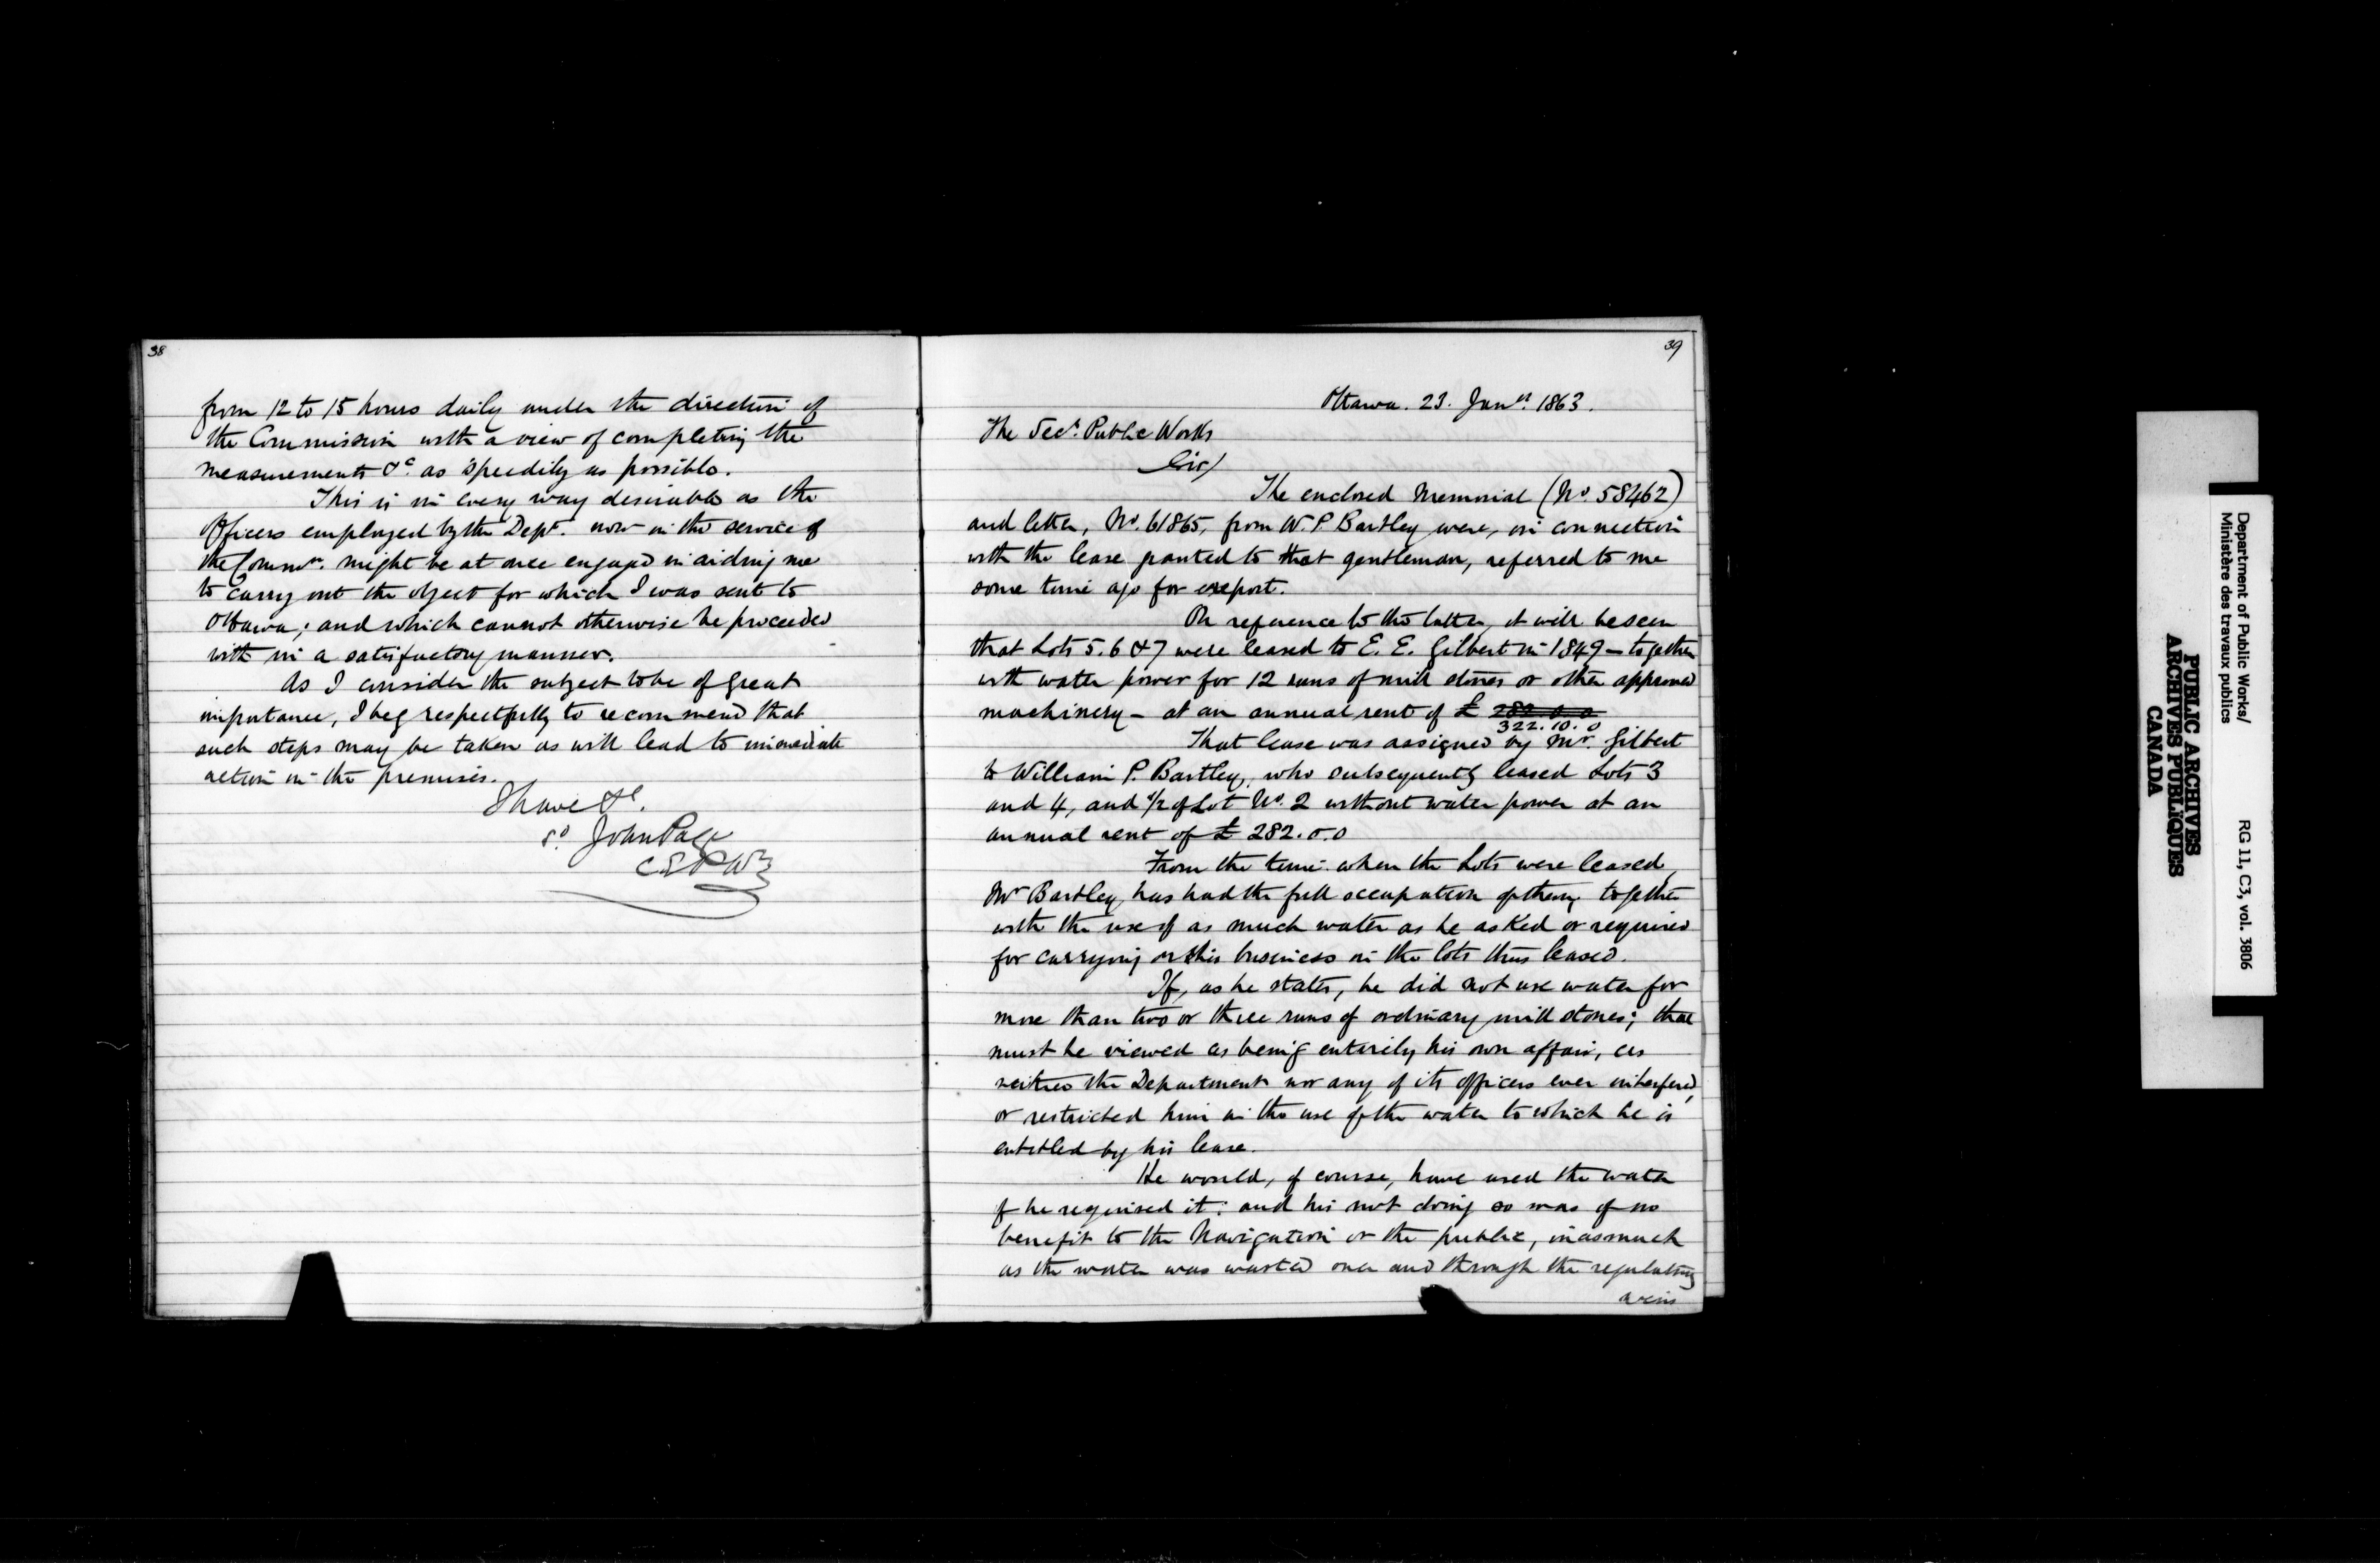 38
from 12 to 15 hours daily under the direction of
the Commission with a view of completing the
measurements &c. as speedily as possible.
This is in every way desirable as the
Officers employed by the Dept. now in the service of
the Commn. might be at once engaged in aiding me
to carry out the object for which I was sent to
Ottawa; and which cannot otherwise be proceeded
with in a satisfactory manner.
As I consider the subject to be of great
importance, I beg respectfully to recommend that
such steps may be taken as will lead to immediate
action in the premises.
I have &c.
sd. John Page
C.E.P.W.
39
Ottawa. 23. Jany. 1863.
The Secy. Public Works
Sir/
The enclosed Memorial (No. 58462)
and letter, No. 61865, from W. P. Bartley were, in connection
with the lease granted to that gentleman, referred to me
some time ago for report.
On reference to the latter, it will be seen
that Lots 5. 6 & 7 were leased to E. E. Gilbert in 1849 — together
with water power for 12 runs of mill stones or other approved
machinery — at an annual rent of £ 282.0.0
322.10.0
That lease was assigned by Mr. Gilbert
to William P. Bartley, who subsequently leased Lots 3
and 4, and 1/2 of Lot No. 2 without water power at an
annual rent of £ 282.0.0
From the time when the Lots were leased,
Mr Bartley has had the full occupation of them, together
with the use of as much water as he asked or required
for carrying on his business on the lots thus leased.
If, as he states, he did not use water for
more than two or three runs of ordinary mill stones; that
must be viewed as being entirely his own affair, as
neither the Department nor any of its officers ever interfered,
or restricted him in the use of the water to which he is
entitled by his lease.
He would, of course, have used the water
if he required it: and his not doing so was of no
benefit to the Navigation or the public, inasmuch
as the water was wasted over and through the regulating
weirs
Department of Public Works/
Ministère des travaux publics
RG 11, C3, vol. 3806
PUBLIC ARCHIVES
ARCHIVES PUBLIQUES
CANADA